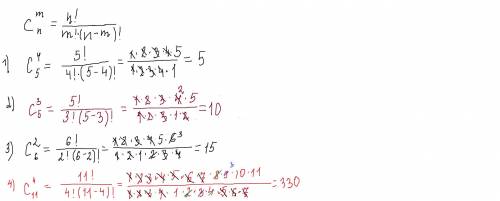 C_n^m = n! / (m!·(n-m)!)
1) C_5^4 = 5! / (4!·(5-4)!) = (1·2·3·4·5) / (1·2·3·4·1) = 5
2) C_5^3 = 5! / (3!·(5-3)!) = (1·2·3·4²·5) / (1·2·3·1·2) = 10
3) C_6^2 = 6! / (2!(6-2)!) = (1·2·3·4·5·6³) / (1·2·1·2·3·4) = 15
4) C_11^4 = 11! / (4!(11-4)!) = (1·2·3·4·5·6·7·8·9³·10·11) / (1·2·3·4·1·2·3·4·5·6·7) = 330